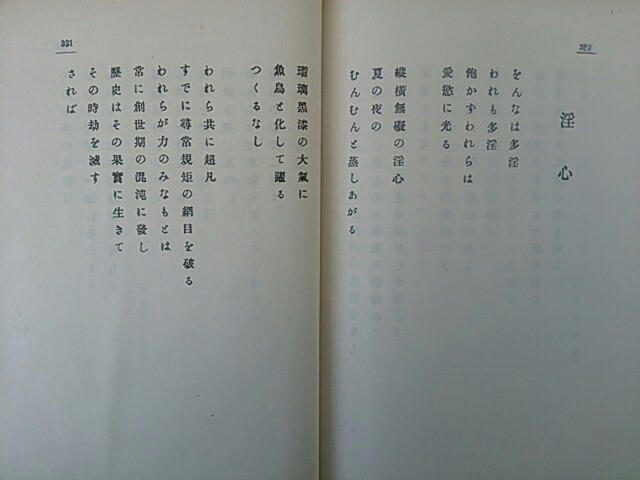 320
淫心
をんなは多淫
われも多淫
飽かずわれらは
愛慾に光る
縱橫無礙の淫心
夏の夜の
むんむんと蒸しあがる
瑠璃黑漆の大氣に
魚鳥と化して躍る
つくるなし
われら共に超凡
すでに尋常規矩の網目を破る
われらが力のみなもとは
常に創世期の混沌に發し
歷史はその果實に生きて
その時劫を滅す
されば
321